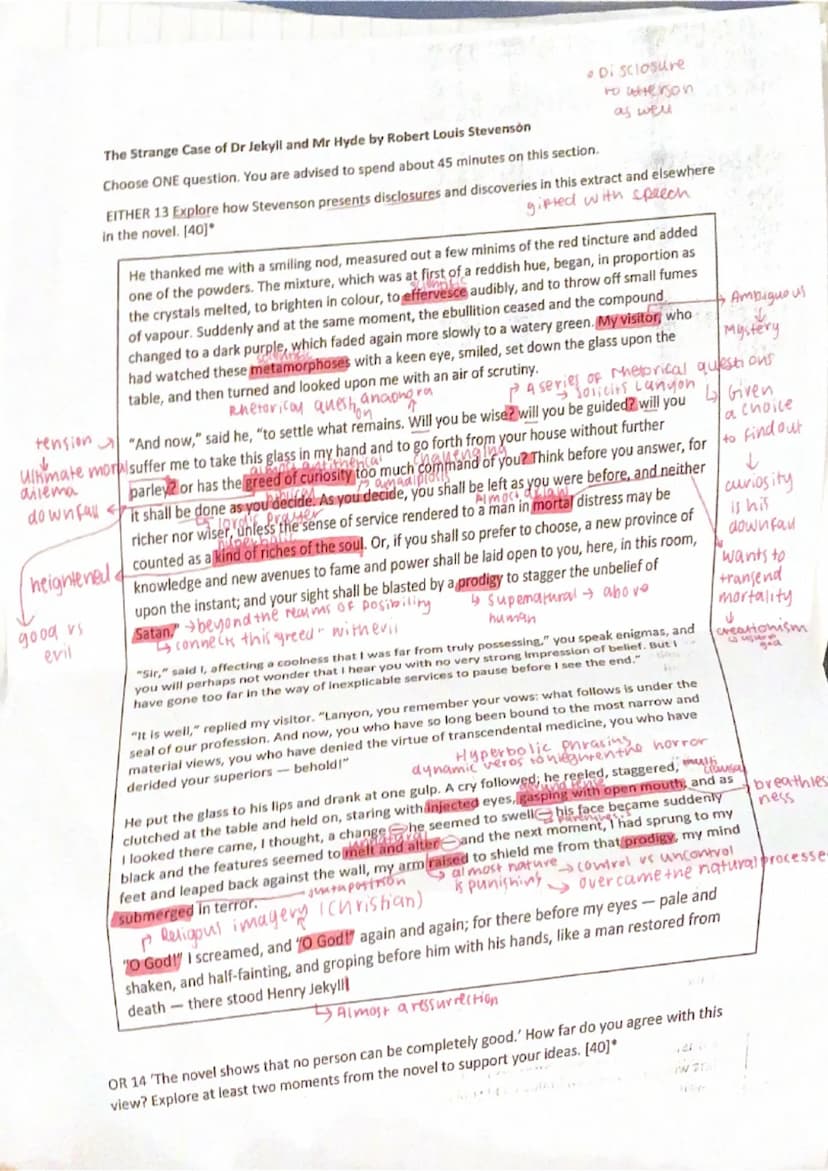 • Disclosure
to utterson
as well
The Strange Case of Dr Jekyll and Mr Hyde by Robert Louis Stevenson
Choose ONE question. You are advised to spend about 45 minutes on this section.
EITHER 13 Explore how Stevenson presents disclosures and discoveries in this extract and elsewhere
in the novel. [40]*
gifted with speech
He thanked me with a smiling nod, measured out a few minims of the red tincture and added
one of the powders. The mixture, which was at first of a reddish hue, began, in proportion as
scientific
the crystals melted, to brighten in colour, to effervesce audibly, and to throw off small fumes
of vapour. Suddenly and at the same moment, the ebullition ceased and the compound
changed to a dark purple, which faded again more slowly to a watery green. My visitor, who
scientific
had watched these metamorphoses with a keen eye, smiled, set down the glass upon the
table, and then turned and looked upon me with an air of scrutiny.
Ambiguous
Mystery
A series of rhetorical questions
solicits Lanyon
Given
a choice
to find out
curiosity
is his
downfall
wants to
transend
mortality
creationism
Rhetorical quest
on
"And now," said he, "to settle what remains. Will you be wise? will you be guided? will you
suffer me to take this glass in my hand and to go forth from your house without further
challenging
parley? or has the greed of curiosity too much command of you? Think before you answer, for
it shall be done as you decide. As you decide, you shall be left as you were before, and neither
lord's prayer
richer nor wiser, unless the sense of service rendered to a man in mortal distress may be
hyperbolic
counted as a kind of riches of the soul. Or, if you shall so prefer to choose, a new province of
knowledge and new avenues to fame and power shall be laid open to you, here, in this room,
upon the instant; and your sight shall be blasted by a prodigy to stagger the unbelief of
Satan."
beyond the realms of posibility
connects this "greed" with evil
supernatural → above
human
tension
Ultimate moral
dilema
downfall
heightened
good vs
evil
"Sir," said I, affecting a coolness that I was far from truly possessing," you speak enigmas, and
you will perhaps not wonder that I hear you with no very strong impression of belief. But I
have gone too far in the way of inexplicable services to pause before I see the end."
"It is well," replied my visitor. "Lanyon, you remember your vows: what follows is under the
seal of our profession. And now, you who have so long been bound to the most narrow and
material views, you who have denied the virtue of transcendental medicine, you who have
derided your superiors — behold!"
Hyperbolic phrasing
dynamic verbs to heighten the horror
He put the glass to his lips and drank at one gulp. A cry followed; he reeled, staggered,
multi clausal
clutched at the table and held on, staring with injected eyes, gasping with open mouth; and as
breathless
ness
I looked there came, I thought, a change — he seemed to swell — his face became suddenly
black and the features seemed to melt and alter — and the next moment, I had sprung to my
feet and leaped back against the wall, my arm raised to shield me from that prodigy, my mind
submerged in terror.
juxtaposition
almost nature
is punishing
control vs uncontrol
overcame the natural processe
Religous imagery (Christian)
"O God!" I screamed, and "O God!" again and again; for there before my eyes — pale and
shaken, and half-fainting, and groping before him with his hands, like a man restored from
death — there stood Henry Jekyll!
Almost a ressurrection
OR 14 'The novel shows that no person can be completely good.' How far do you agree with this
view? Explore at least two moments from the novel to support your ideas. [40]*